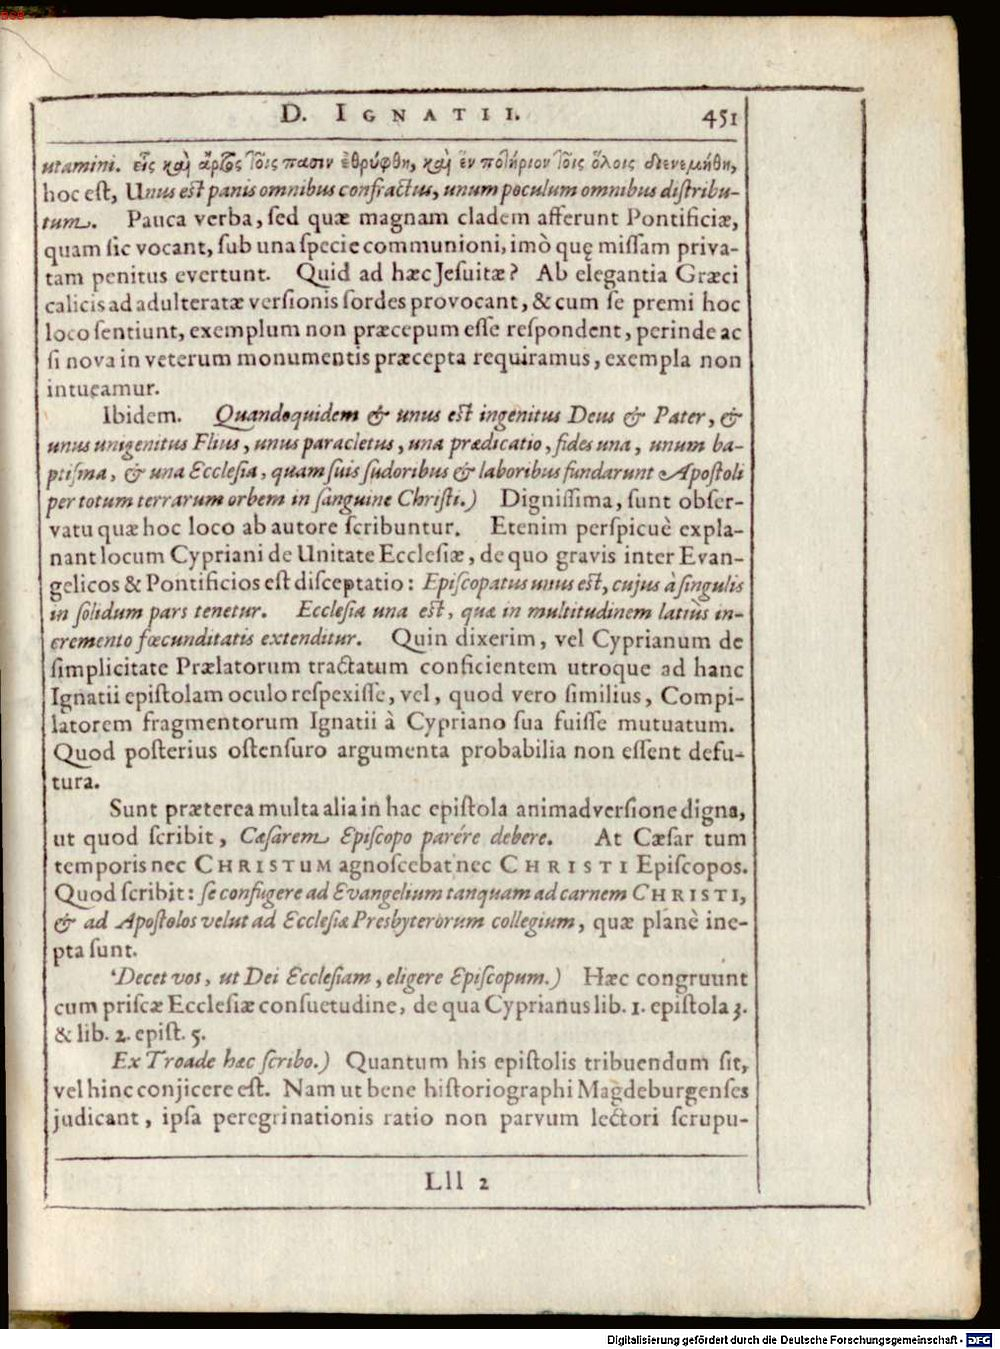 D. IGNATII. 451
utamini. εἷς καὶ ἄρτος τοῖς πασιν ἐθρύφθη, καὶ ἓν ποτήριον τοῖς ὅλοις διενεμήθη,
hoc est, Unus est panis omnibus confractus, unum poculum omnibus distribu-
tum. Pauca verba, sed quæ magnam cladem afferunt Pontificiæ,
quam sic vocant, sub una specie communioni, imò quę missam priva-
tam penitus evertunt. Quid ad hæc Jesuitæ? Ab elegantia Græci
calicis ad adulteratæ versionis sordes provocant, & cum se premi hoc
loco sentiunt, exemplum non præcepum esse respondent, perinde ac
si nova in veterum monumentis præcepta requiramus, exempla non
intueamur.
Ibidem. Quandoquidem & unus est ingenitus Deus & Pater, &
unus unigenitus Flius, unus paracletus, una prædicatio, fides una, unum ba-
ptisma, & una Ecclesia, quam suis sudoribus & laboribus fundarunt Apostoli
per totum terrarum orbem in sanguine Christi.) Dignissima, sunt obser-
vatu quæ hoc loco ab autore scribuntur. Etenim perspicuè expla-
nant locum Cypriani de Unitate Ecclesiæ, de quo gravis inter Evan-
gelicos & Pontificios est disceptatio: Episcopatus unus est, cujus à singulis
in solidum pars tenetur. Ecclesia una est, quæ in multitudinem latiùs in-
cremento fœcunditatis extenditur. Quin dixerim, vel Cyprianum de
simplicitate Prælatorum tractatum conficientem utroque ad hanc
Ignatii epistolam oculo respexisse, vel, quod vero similius, Compi-
latorem fragmentorum Ignatii à Cypriano sua fuisse mutuatum.
Quod posterius ostensuro argumenta probabilia non essent defu-
tura.
Sunt præterea multa alia in hac epistola animadversione digna,
ut quod scribit, Cæsarem Episcopo parére debere. At Cæsar tum
temporis nec CHRISTUM agnoscebat nec CHRISTI Episcopos.
Quod scribit: se confugere ad Evangelium tanquam ad carnem CHRISTI,
& ad Apostolos velut ad Ecclesiæ Presbyterorum collegium, quæ planè ine-
pta sunt.
Decet vos, ut Dei Ecclesiam, eligere Episcopum.) Hæc congruunt
cum priscæ Ecclesiæ consuetudine, de qua Cyprianus lib. 1. epistola 3.
& lib. 2. epist. 5.
Ex Troade hæc scribo.) Quantum his epistolis tribuendum sit,
vel hinc conjicere est. Nam ut bene historiographi Magdeburgenses
judicant, ipsa peregrinationis ratio non parvum lectori scrupu-
Lll 2
Digitalisierung gefördert durch die Deutsche Forschungsgemeinschaft - DFG